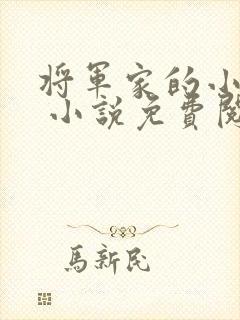 將軍家的小
小說免費閱
馬新民